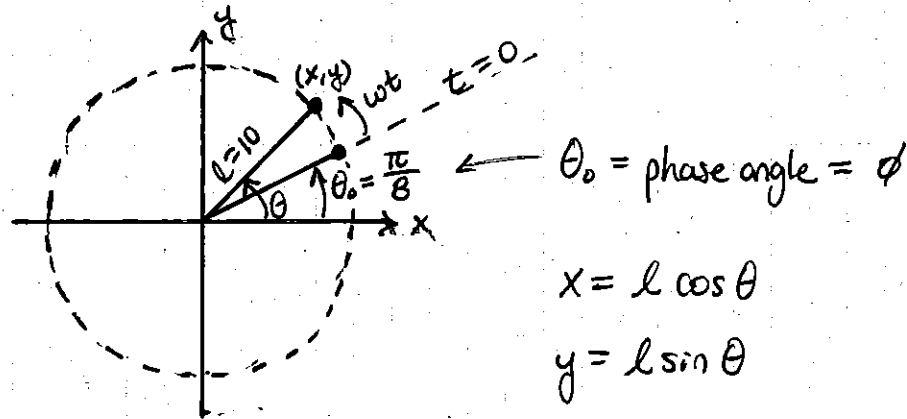 y
(x,y)
ωt
t=0
l=10
θ
θ₀ = π/8
x
θ₀ = phase angle = ϕ
x = l cos θ
y = l sin θ